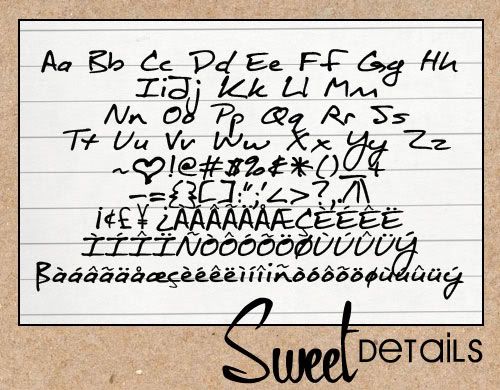 Aa Bb Cc Dd Ee Ff Gg Hh
Ii Jj Kk Ll Mm
Nn Oo Pp Qq Rr Ss
Tt Uu Vv Ww Xx Yy Zz
~♥!@#$%¢*()_+
-={}[]:";'<>?,./|\
¡¢£¥¿ÀÁÂÃÄÅÆÇÈÉÊË
ÌÍÎÏÑÒÓÔÕÖØÙÚÛÜÝ
ßàáâãäåæçèéêëìíîïñòóôõöøùúûüý
Sweet DETAILS